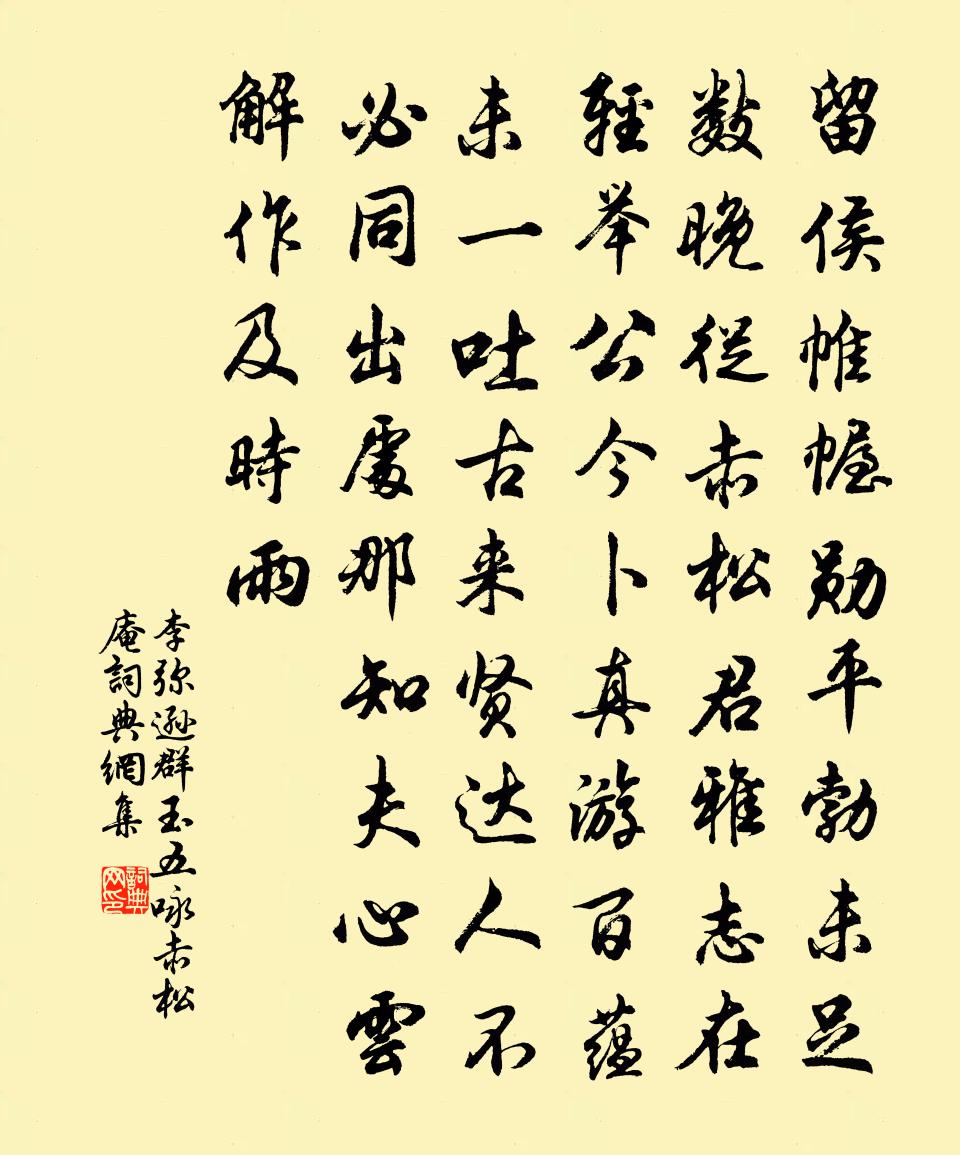 留侯帷幄勋平勃未足
数晚從赤松君雅志在
輕举公今卜真游百蕴
未一吐古来贤达人不
必同出處那知夫心雲
解作及時雨
李弥遜群玉五咏赤松
庵詞典網集
詞典
网印